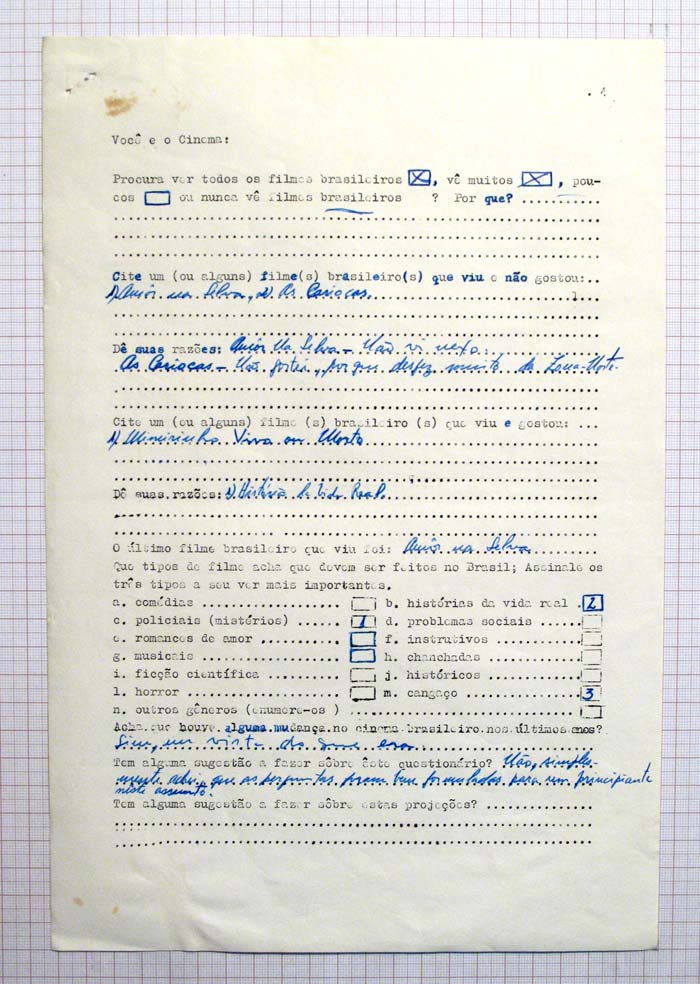 . 1
Você e o Cinema:
Procura ver todos os filmes brasileiros [X], vê muitos [X], pou-
cos [ ] ou nunca vê filmes brasileiros ? Por que? ............
Cite um (ou alguns) filme(s) brasileiro(s) que viu e não gostou:..
1) Amor na Selva, 2) As Cariocas.
Dê suas razões: Amor Na Selva - Não vi nexo.
As Cariocas - Não gostei, porque desfez muito da Zona-Norte.
Cite um (ou alguns) filme (s) brasileiro (s) que viu e gostou: ...
1) Mineirinho Vivo ou Morto
Dê suas razões: 1) História da Vida Real.
O último filme brasileiro que viu foi: Amor na Selva
Que tipos de filme acha que devem ser feitos no Brasil; Assinale os
três tipos a seu ver mais importantes.
a. comédias .................. [ ] b. histórias da vida real . [2]
c. policiais (mistérios) ...... [1] d. problemas sociais ...... [ ]
e. romances de amor .......... [ ] f. instrutivos ............ [ ]
g. musicais .................. [ ] h. chanchadas ............. [ ]
i. ficção científica .......... [ ] j. históricos ............. [ ]
l. horror .................... [ ] m. cangaço ................ [3]
n. outros gêneros (enumere-os ) ............................ [ ]
Acha que houve alguma mudança no cinema brasileiro nos últimos anos?
Sim, em vista do que era.
Tem alguma sugestão a fazer sôbre êste questionário? Não, simples-
mente achei que as perguntas foram bem formuladas para um principiante
neste assunto.
Tem alguma sugestão a fazer sôbre estas projeções? ...............